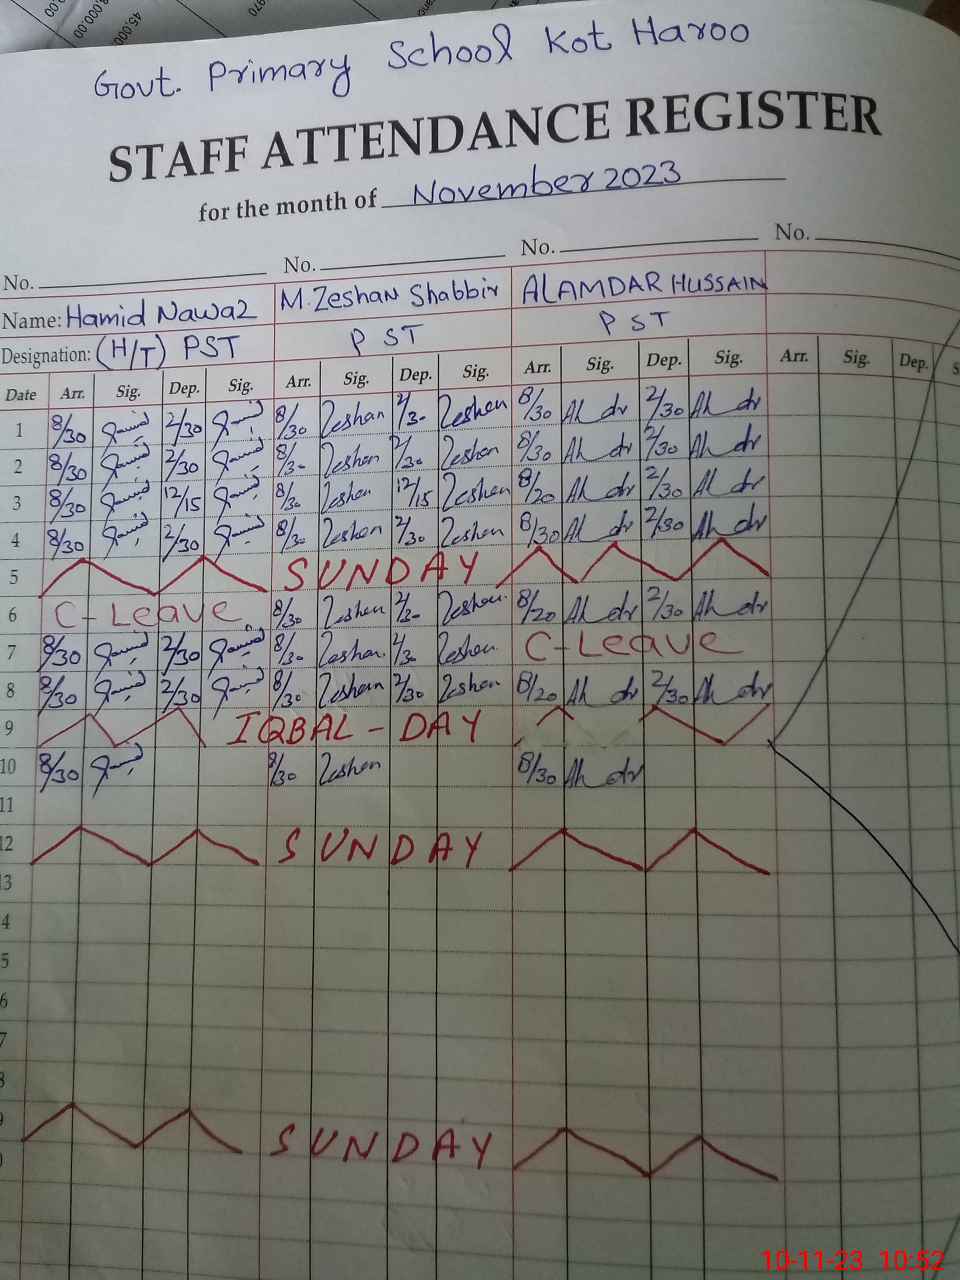 45,000
970
Govt. Primary School Kot Haroo
STAFF ATTENDANCE REGISTER
for the month of November 2023
No. No. No. No.
Name: Hamid Nawaz M. Zeshan Shabbir ALAMDAR HUSSAIN
Designation: (H/T) PST PST PST
Date Arr. Sig. Dep. Sig. Arr. Sig. Dep. Sig. Arr. Sig. Dep. Sig. Arr. Sig. Dep. S
1 8/30 2/30 8/30 Zeshan 2/30 Zeshan 8/30 2/30
2 8/30 2/30 8/30 Zeshan 2/30 Zeshan 8/30 2/30
3 8/30 12/15 8/30 Zeshan 12/15 Zeshan 8/20 2/30
4 8/30 2/30 8/30 Zeshan 2/30 Zeshan 8/30 2/30
5 SUNDAY
6 C-Leave 8/30 Zeshan 2/30 Zeshan 8/20 2/30
7 8/30 2/30 8/30 Zeshan 2/30 Zeshan C-Leave
8 8/30 2/30 8/30 Zeshan 2/30 Zeshan 8/20 2/30
9 IQBAL-DAY
10 8/30 8/30 Zeshan 8/30
11
12 SUNDAY
13
4
5
6
7
8
9 SUNDAY
0
10-11-23 10:52